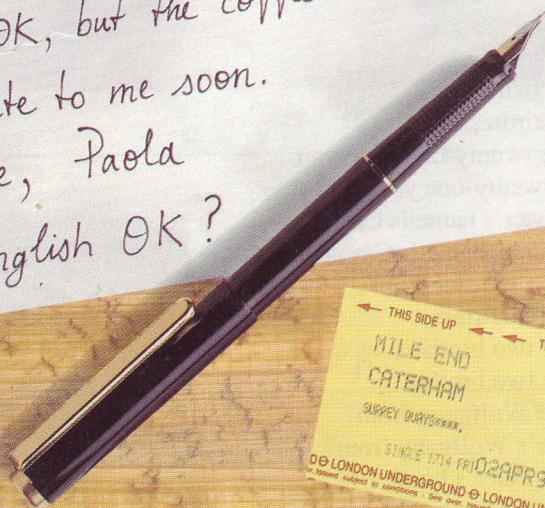 OK, but the
te to me soon.
e, Paola
nglish OK?
THIS SIDE UP
MILE END
CATERHAM
SURREY QUAYS
SINGLE 1714 FRI 02APR9
LONDON UNDERGROUND LONDON UN
Issued subject to conditions - See over. Issued